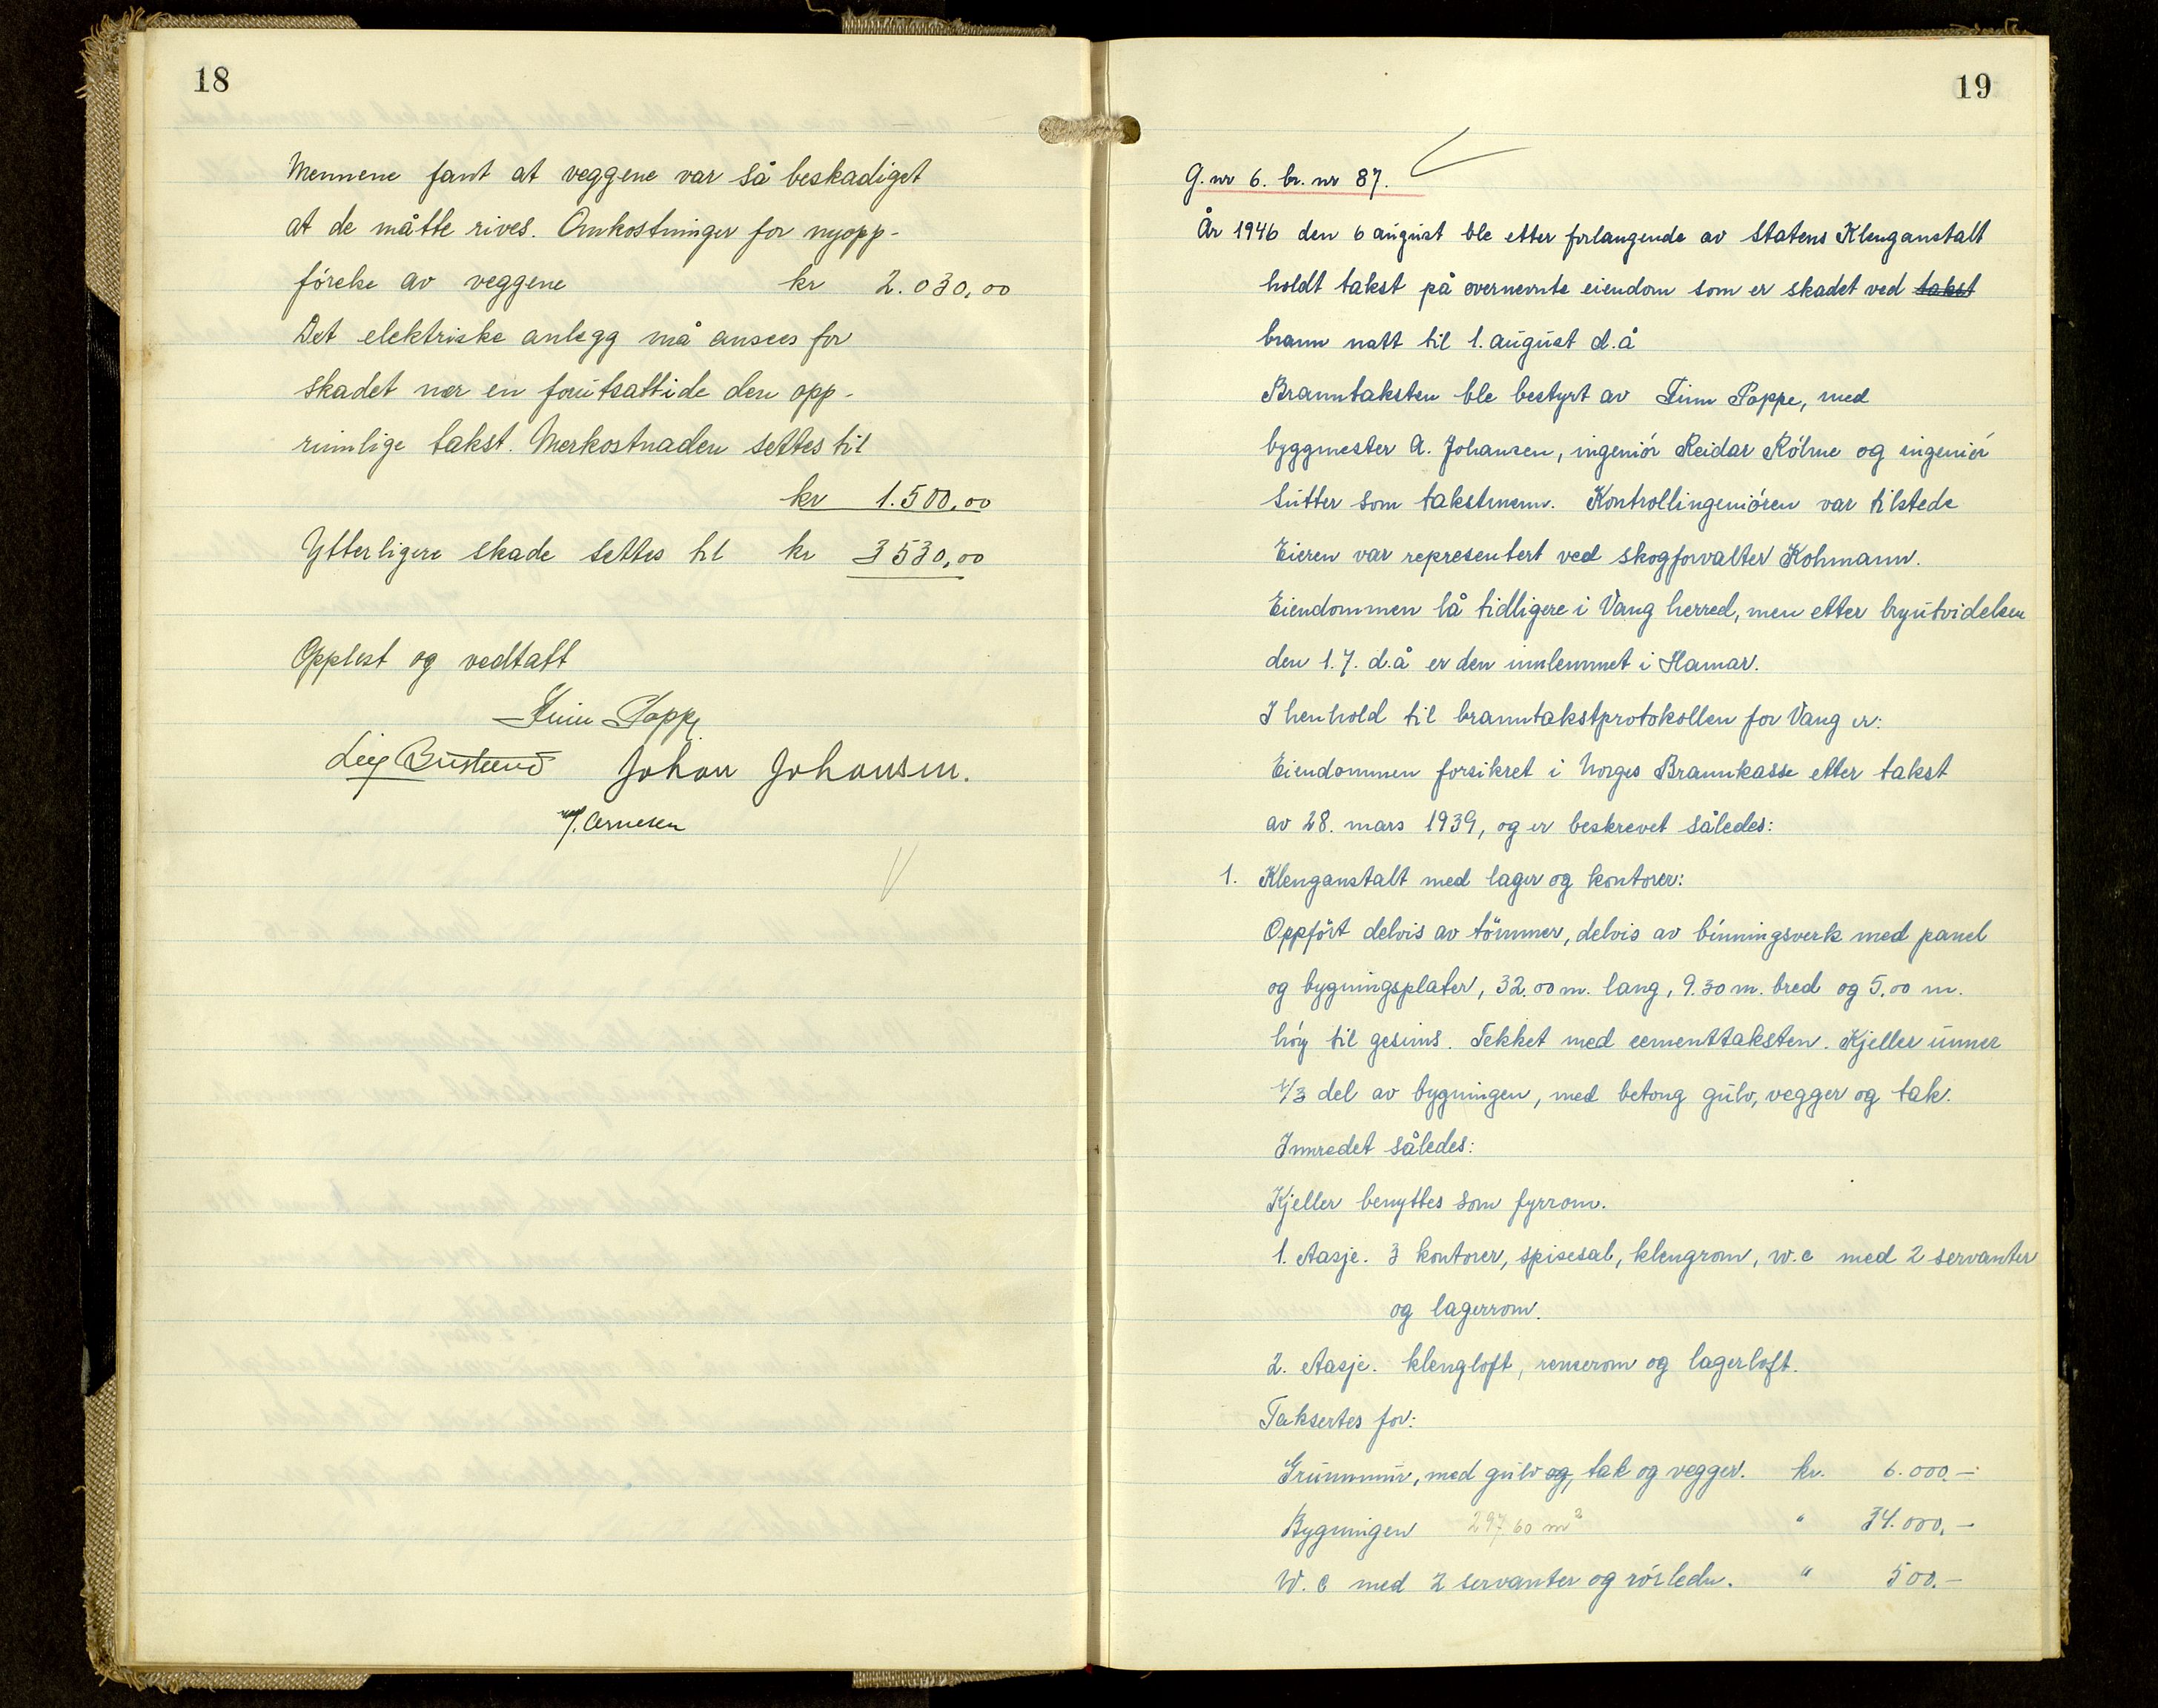 18
Mennene fant at veggene var så beskadiget
at de måtte rives. Omkostninger for nyopp-
förelse av veggene kr 2.030,00
Det elektriske anlegg må ansees for
skadet mer en forutsatt i de den opp-
rinnlige takst. Merkostnaden settes til
kr 1.500,00
Ytterligere skade settes til kr 3530,00
Opplest og vedtatt
Finn Poppe
Johan Johansen.
19
G. nr 6. br. nr 87.
År 1946 den 6 august ble etter forlangende av Statens Klenganstalt
holdt takst på overnevnte eiendom som er skadet ved takst
brann natt til 1. august d.å
Branntaksten ble bestyrt av Finn Poppe, med
byggmester A. Johansen, ingeniör Reidar Rölme og ingeniör
Sutter som takstmenn. Kontrollingeniören var tilstede
Eieren var representert ved skogforvalter Kohmann.
Eiendommen lå tidligere i Vang herred, men etter byutvidelsen
den 1.7. d.å er den innlemmet i Hamar.
I henhold til branntakstprotokollen for Vang er:
Eiendommen forsikret i Norges Brannkasse etter takst
av 28. mars 1939, og er beskrevet således:
1. Klenganstalt med lager og kontorer:
Oppfört delvis av tömmer, delvis av binningsverk med panel
og bygningsplater, 32.00 m. lang, 9.30 m. bred og 5.00 m.
höy til gesims. Tekket med cementtaksten. Kjeller unner
1/3 del av bygningen, med betong gulv, vegger og tak.
Innredet således:
Kjeller benyttes som fyrrom.
1. etasje. 3 kontorer, spisesal, klengrom, w.c med 2 servanter
og lagerrom.
2. etasje. klengloft, renserom og lagerloft.
Taksertes for:
Grunnmur, med gulv og, tak og vegger. kr. 6.000.-
Bygningen 297.60 m² " 34.000.-
W.C med 2 servanter og rörledn. " 500.-